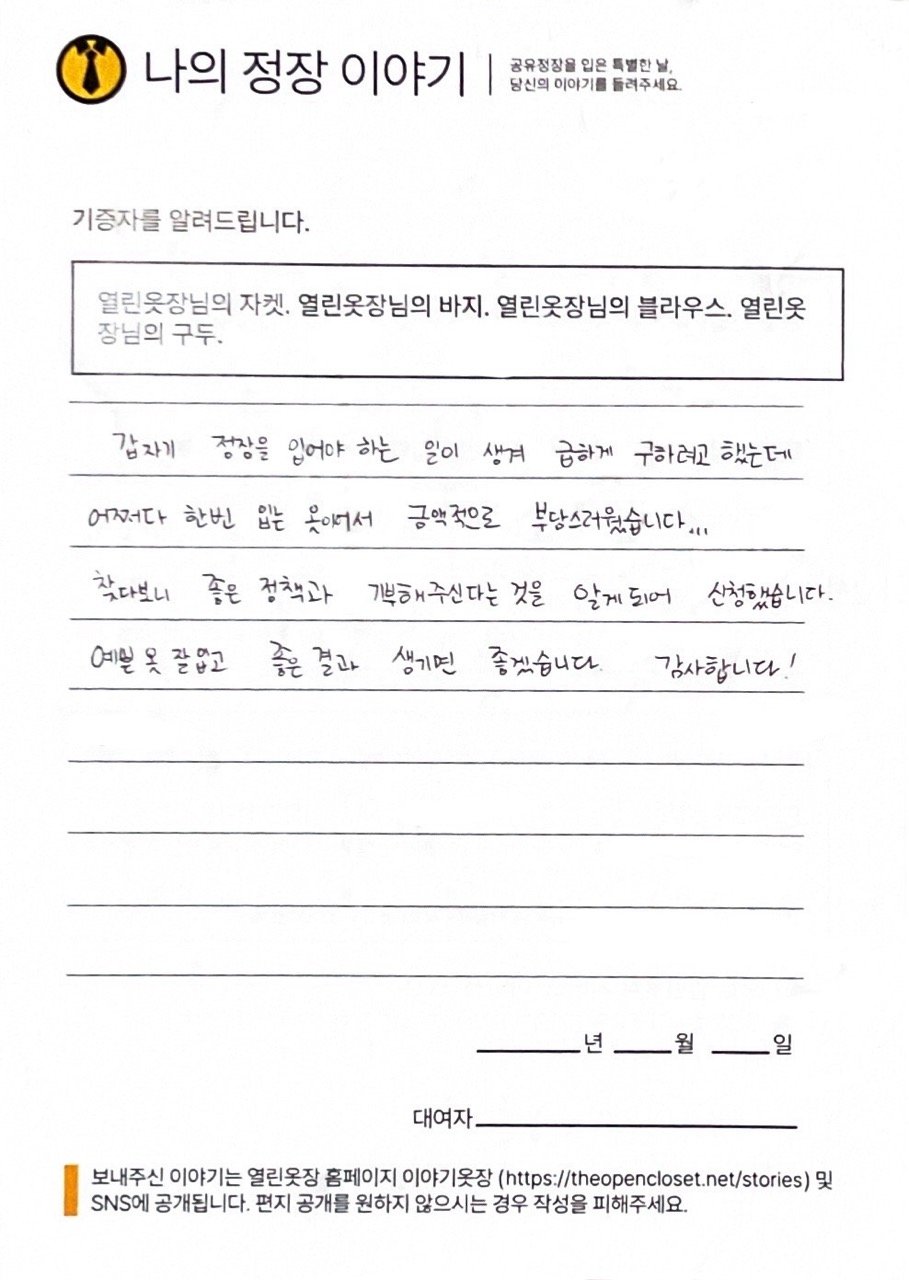 나의 정장 이야기
공유정장을 입은 특별한 날,
당신의 이야기를 들려주세요.
기증자를 알려드립니다.
열린옷장님의 자켓. 열린옷장님의 바지. 열린옷장님의 블라우스. 열린옷
장님의 구두.
갑자기 정장을 입어야 하는 일이 생겨 급하게 구하려고 했는데
어쩌다 한번 입는 옷이여서 금액적으로 부담스러웠습니다...
찾다보니 좋은 정책과 기부해주신다는 것을 알게되어 신청했습니다.
예쁜 옷 잘입고 좋은 결과 생기면 좋겠습니다. 감사합니다!
년 월 일
대여자
보내주신 이야기는 열린옷장 홈페이지 이야기옷장 (https://theopencloset.net/stories) 및
SNS에 공개됩니다. 편지 공개를 원하지 않으시는 경우 작성을 피해주세요.